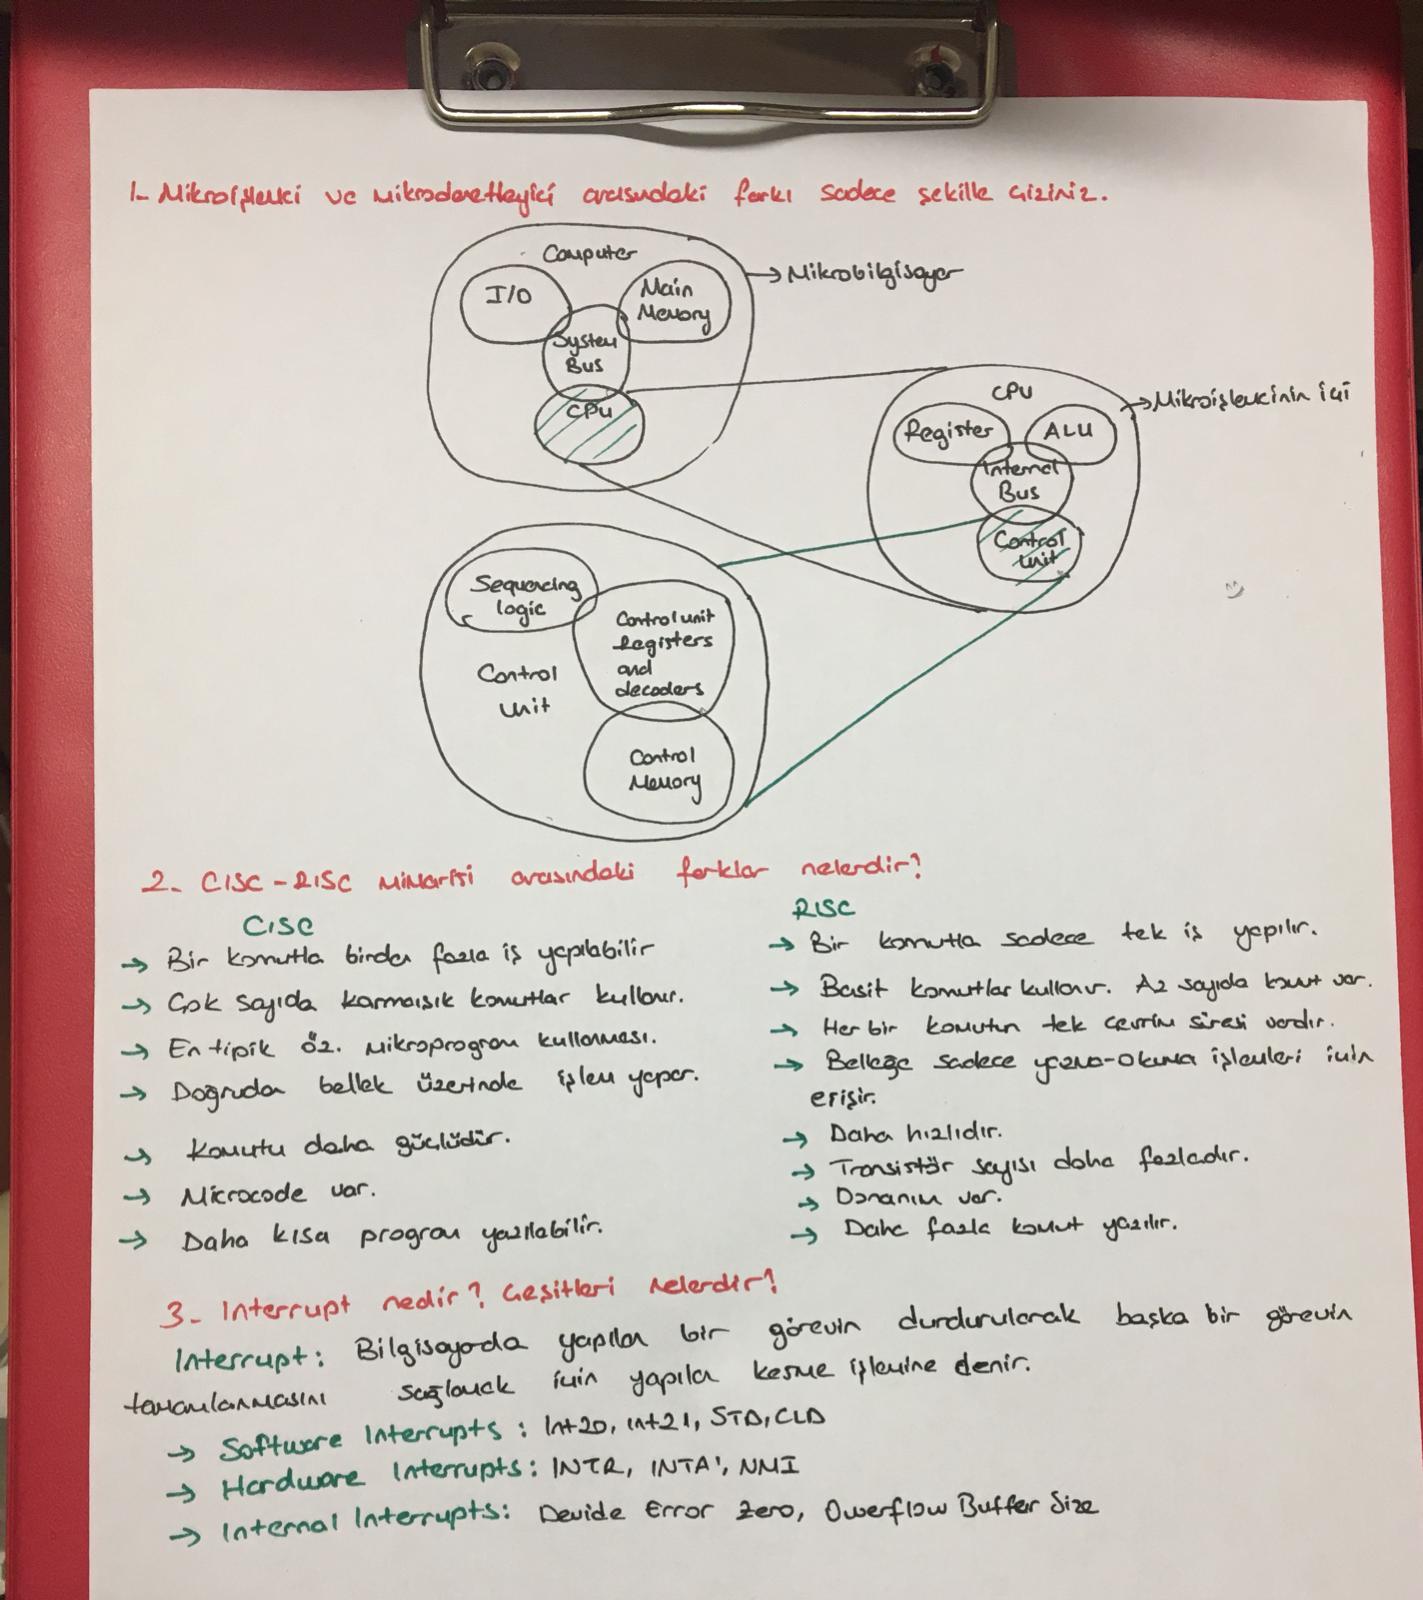 1- Mikroişlemci ve Mikrodenetleyici arasındaki farkı sadece şekille çiziniz.
Computer
→ Mikrobilgisayar
I/O
Main
Memory
System
Bus
CPU
CPU
→ Mikroişlemcinin içi
Register
ALU
Internal
Bus
Control
unit
Sequencing
logic
Control unit
Registers
and
decoders
Control
unit
Control
Memory
2- CISC - RISC Mimarisi arasındaki farklar nelerdir?
CISC
→ Bir komutla birden fazla iş yapılabilir
→ Çok sayıda karmaışık komutlar kullanır.
→ En tipik öz. mikroprogram kullanması.
→ Doğrudan bellek üzerinde işlem yapar.
→ Komutu daha güçlüdür.
→ Microcode var.
→ Daha kısa program yazılabilir.
RISC
→ Bir komutla sadece tek iş yapılır.
→ Basit komutlar kullanır. Az sayıda komut var.
→ Her bir komutun tek çevrim süresi vardır.
→ Belleğe sadece yazma-okuma işlemleri için
erişir.
→ Daha hızlıdır.
→ Transistör sayısı daha fazladır.
→ Donanım var.
→ Daha fazla komut yazılır.
3- Interrupt nedir? Çeşitleri nelerdir?
Interrupt: Bilgisayarda yapılan bir görevin durdurularak başka bir görevin
tamamlanmasını sağlamak için yapılan kesme işlemine denir.
→ Software Interrupts: Int20, int21, STD, CLD
→ Hardware Interrupts: INTR, INTA', NMI
→ Internal Interrupts: Devide Error Zero, Owerflow Buffer Size